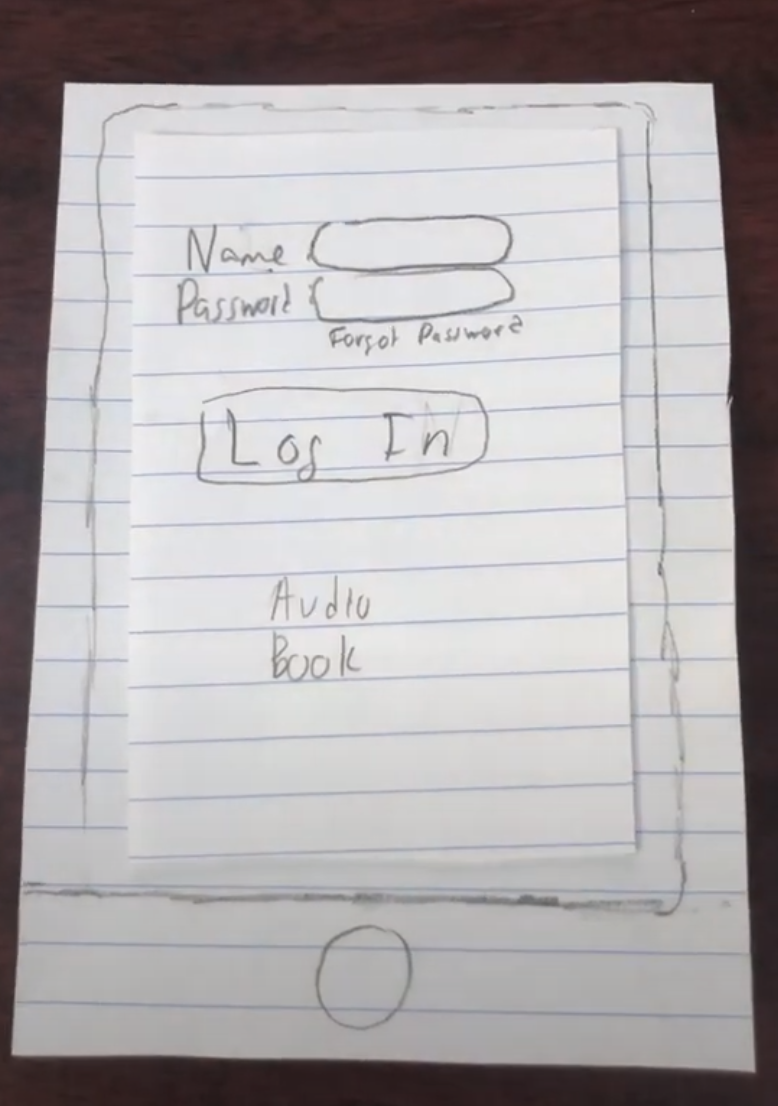 Name
Password
Forgot Password
Log In
Audio
Book